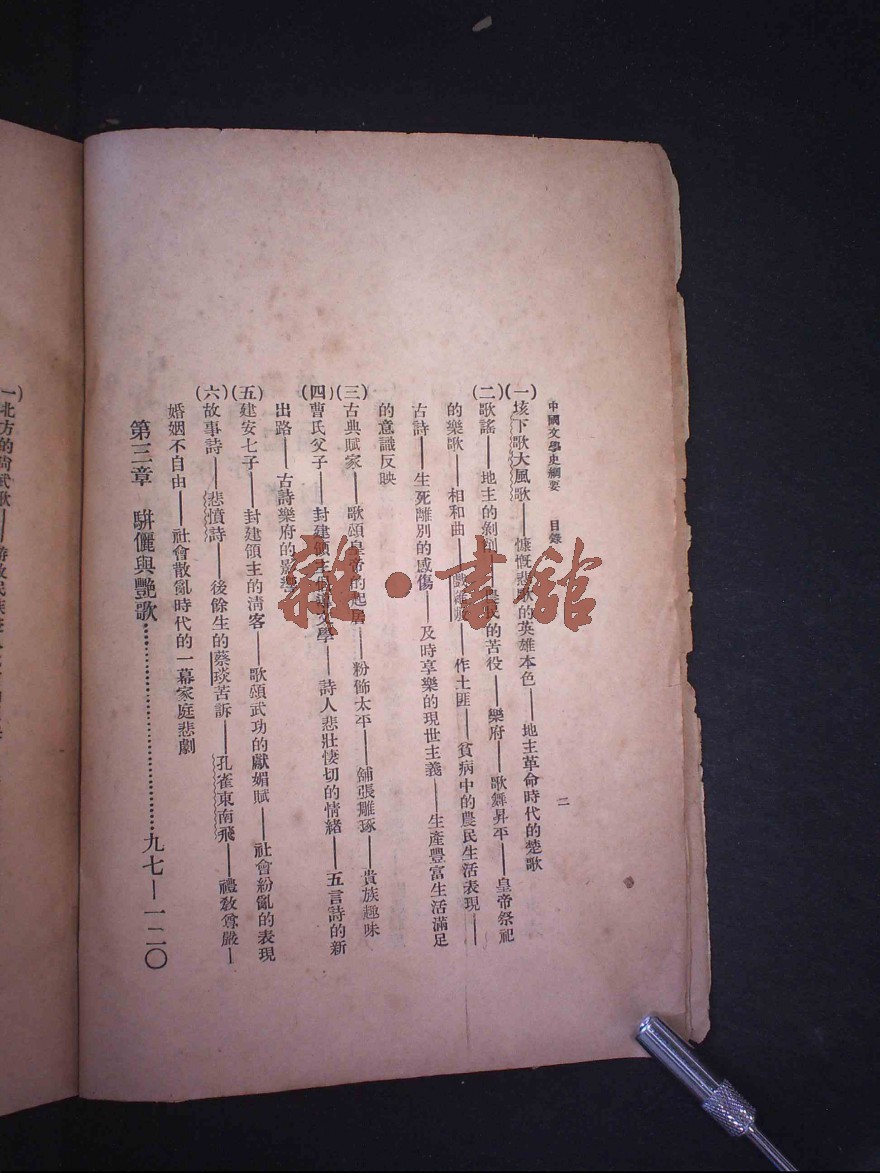 中國文學史綱要 目錄 二
(一)垓下歌大風歌——慷慨悲歌的英雄本色——地主革命時代的楚歌
(二)歌謠——地主的剝削——農民的苦役——樂府——歌舞昇平——皇帝祭祀
的樂歌——相和曲——作土匪——貧病中的農民生活表現——
古詩——生死離別的感傷——及時享樂的現世主義——生產豐富生活滿足
的意識反映
(三)古典賦家——歌頌皇帝的起居——粉飾太平——舖張雕琢——貴族趣味
(四)曹氏父子——封建領主倡導文學——詩人悲壯悽切的情緒——五言詩的新
出路——古詩樂府的影響
(五)建安七子——封建領主的清客——歌頌武功的獻媚賦——社會紛亂的表現
(六)故事詩——悲憤詩——後餘生的蔡琰苦訴——孔雀東南飛——禮教尊嚴——
婚姻不自由——社會散亂時代的一幕家庭悲劇
第三章 駢儷與艷歌……九七—一二〇
一北方的尚武歌——游牧民族
雜·書館